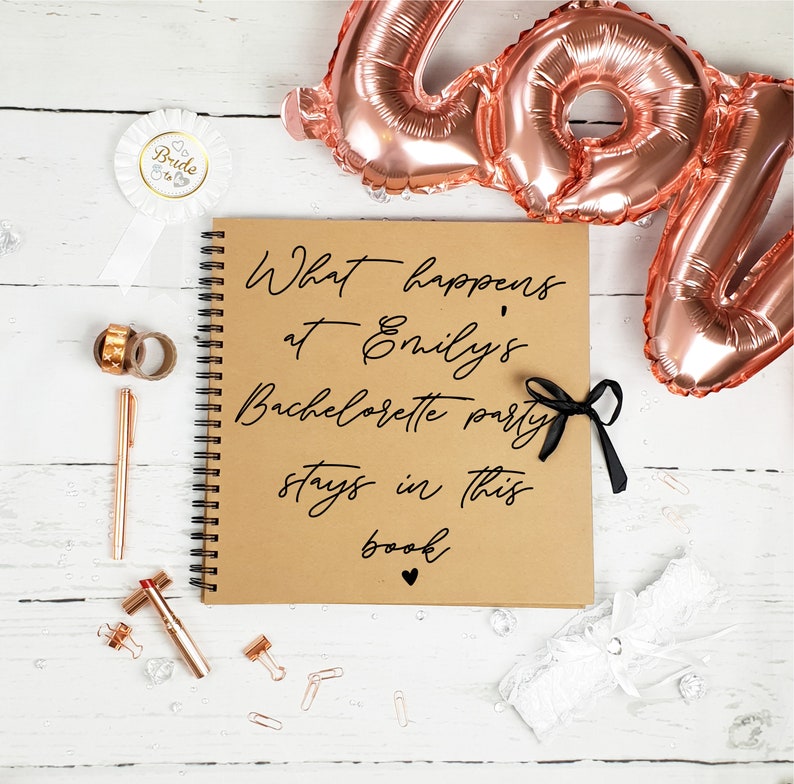 Bride
to
What happens
at Emily's
Bachelorette party
stays in this
book